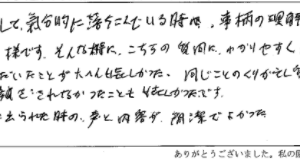 して、気分的に落ちこんでいる時は、事柄の理解
様です。そんな時に、こちらの質問に、わかりやすく
だいたことが大へん嬉しかった。同じことのくりかえし
をされなかったことも嬉しかったです。
出られた時の、声と内容が、簡潔でよかった
ありがとうございました。私の